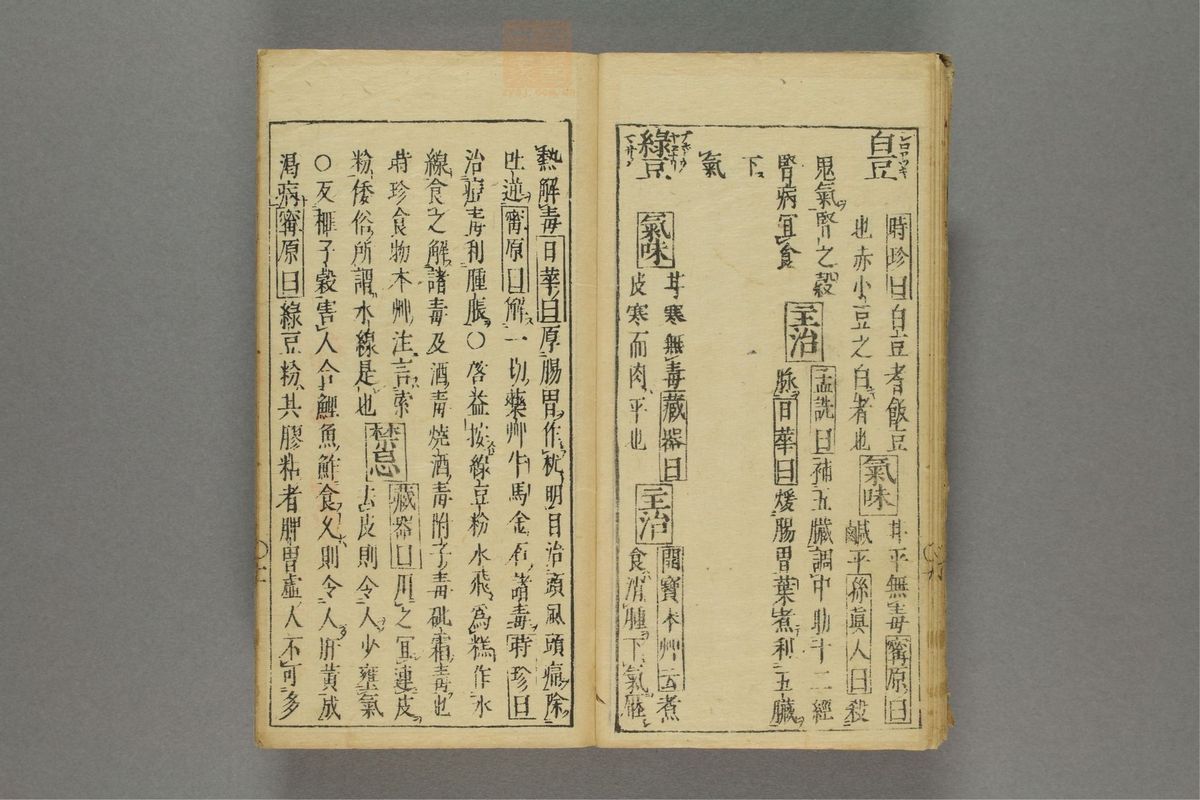 白豆
時珍曰白豆者飯豆
也赤小豆之白者也
氣味
甘平無毒甯原曰
鹹平孫真人曰殺
鬼氣腎之穀
腎病宜食
主治
孟詵曰補五臓調中助十二經
脉日華曰煖腸胃葉煮利五臓
下
氣
綠豆
氣味
甘寒無毒藏器曰
皮寒而肉平也
主治
開寶本艸云煮
食消腫下氣壓
熱解毒日華曰厚腸胃作枕明目治頭風頭痛除
吐逆甯原曰解一切藥艸牛馬金石諸毒時珍曰
治痘毒利腫脹○啓益按綠豆粉水飛為糕作水
線食之解諸毒及酒毒燒酒毒附子毒砒霜毒也
時珍食物本艸注言索
粉倭俗所謂水線是也
禁忌
藏器曰用之宜連皮
去皮則令人少壅氣
○反榧子穀害人合鯉魚鮓食久則令人肝黃成
渴病甯原曰綠豆粉其膠粘者脾胃虛人不可多